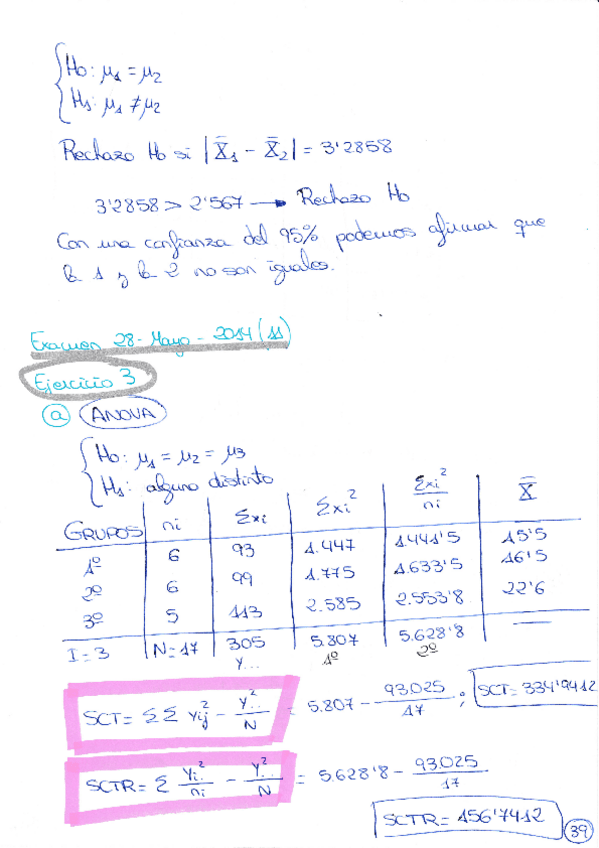 Ho: μ1 = μ2
H1: μ1 ≠ μ2
Rechazo Ho si |X̄1 - X̄2| = 3'2858
3'2858 > 2'567 → Rechazo Ho
Con una confianza del 95% podemos afirmar que
la 1 y la 2 no son iguales.
Examen 28-Mayo-2014 (11)
Ejercicio 3
a) ANOVA
Ho: μ1 = μ2 = μ3
H1: alguno distinto
GRUPOS ni Σxi Σxi² Σxi²/ni X̄
1º 6 93 1.447 1.441'5 15'5
2º 6 99 1.775 1.633'5 16'5
3º 5 113 2.585 2.553'8 22'6
I=3 N=17 305 5.807 5.628'8 —
y.. 1º 2º
SCT = ΣΣ yij² - y..²/N = 5.807 - 93025/17 ; SCT = 334'9412
SCTR = Σ yi.²/ni - y..²/N = 5.628'8 - 93025/17
SCTR = 156'7412
39